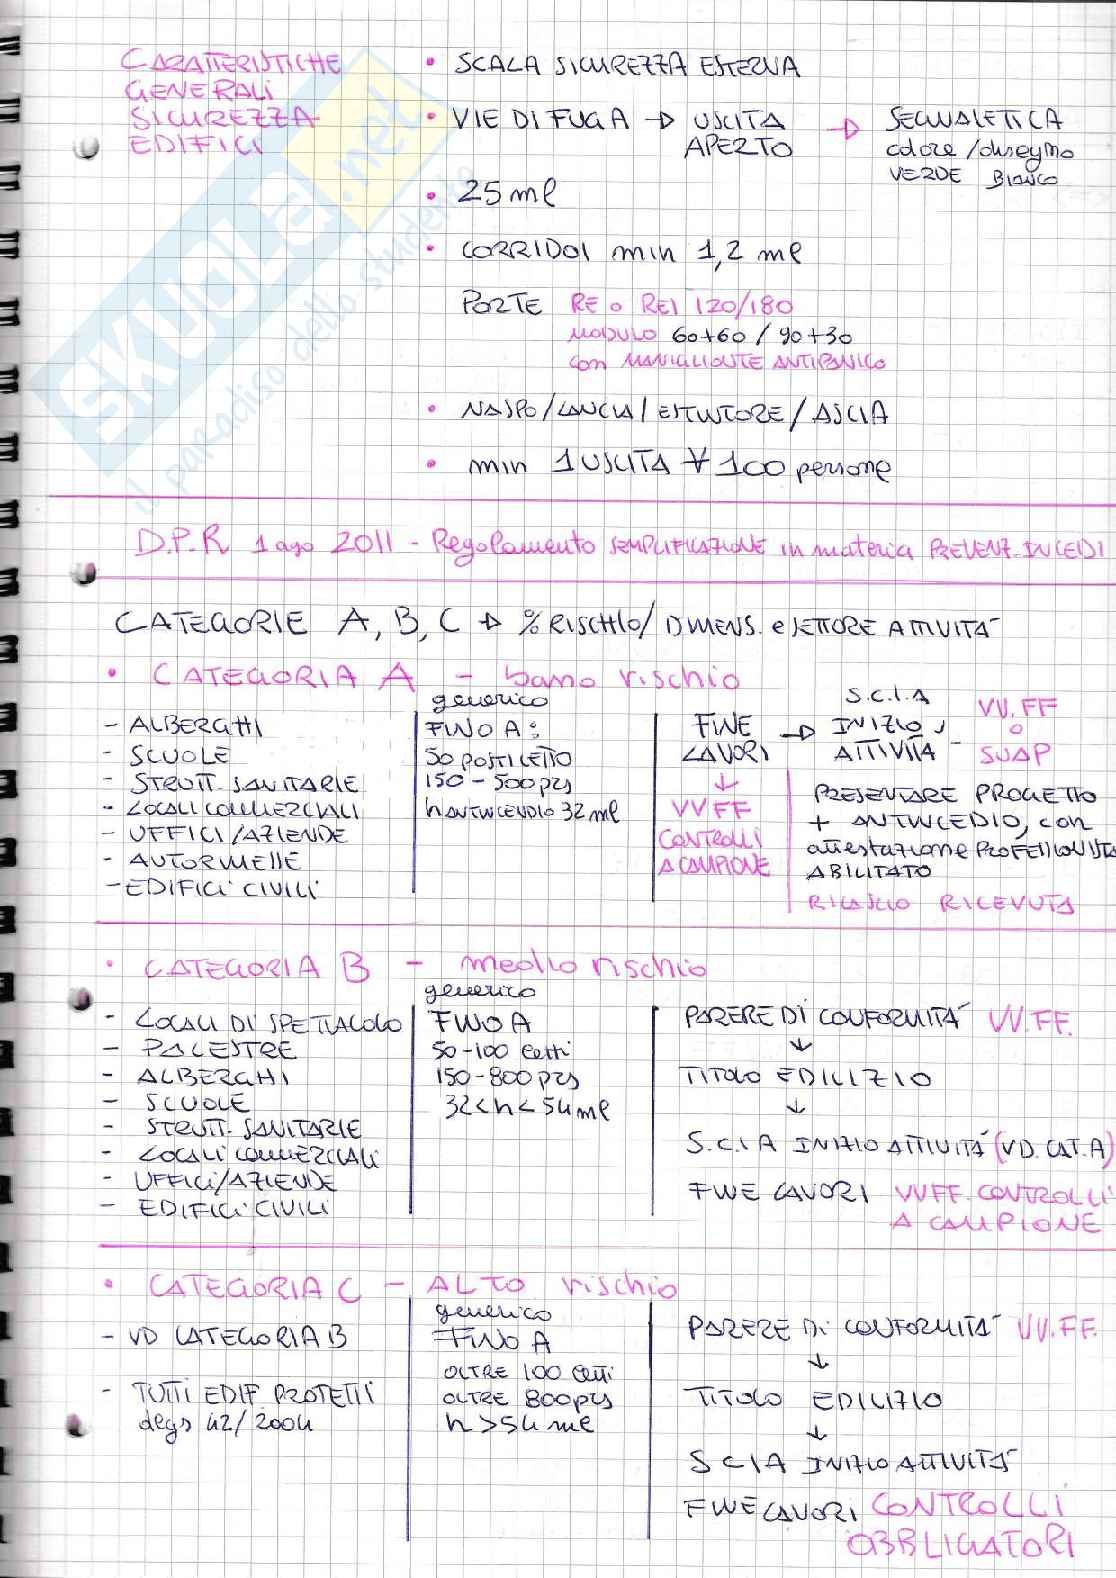 CARATTERISTICHE
GENERALI
SICUREZZA
EDIFICI
• SCALA SICUREZZA ESTERNA
• VIE DI FUGA → USCITA → SEGNALETICA
APERTO colore/disegno
VERDE Bianco
• 25 ml
• CORRIDOI min 1,2 ml
PORTE RE o REI 120/180
MODULO 60+60 / 90+30
con MANIGLIONTE ANTIPANICO
• NASPO/LANCIA/ESTINTORE/ASCIA
• min 1 USCITA ∀ 100 persone
D.P.R 1 ago 2011 - Regolamento SEMPLIFICAZIONE in materia PREVENZ. INCEDI
CATEGORIE A, B, C → % RISCHIO/ DIMENS. e SETTORE ATTIVITÀ
• CATEGORIA A - basso rischio
- ALBERGHI
- SCUOLE
- STRUTT. SANITARIE
- LOCALI COMMERCIALI
- UFFICI/AZIENDE
- AUTORIMESSE
- EDIFICI CIVILI
generico
FINO A:
50 POSTI LETTO
150 - 500 prs
h ANTINCENDIO 32 ml
FINE → S.C.I.A
LAVORI INIZIO
ATTIVITÀ
VV.FF
o
SUAP
↓
VVFF
CONTROLLI
A CAMPIONE
PRESENTARE PROGETTO
+ ANTINCEDIO, con
attestazione PROFESSIONISTA
ABILITATO
RILASCIO RICEVUTA
• CATEGORIA B - medio rischio
- LOCALI DI SPETTACOLO
- PALESTRE
- ALBERGHI
- SCUOLE
- STRUTT. SANITARIE
- LOCALI COMMERCIALI
- UFFICI/AZIENDE
- EDIFICI CIVILI
generico
FINO A
50-100 letti
150-800 prs
32<h<54 ml
PARERE DI CONFORMITÀ VV.FF.
↓
TITOLO EDILIZIO
↓
S.C.I.A INIZIO ATTIVITÀ (VD. CAT. A)
FINE LAVORI VVFF. CONTROLLI
A CAMPIONE
• CATEGORIA C - ALTO rischio
- VD CATEGORIA B
- TUTTI EDIF. PROTETTI
degs 42/2004
generico
FINO A
OLTRE 100 letti
OLTRE 800 prs
h > 54 ml
PARERE DI CONFORMITÀ VV.FF.
↓
TITOLO EDILIZIO
↓
SCIA INIZIO ATTIVITÀ
FINE LAVORI CONTROLLI
OBBLIGATORI
SKUOLA.net
il paradiso dello studente